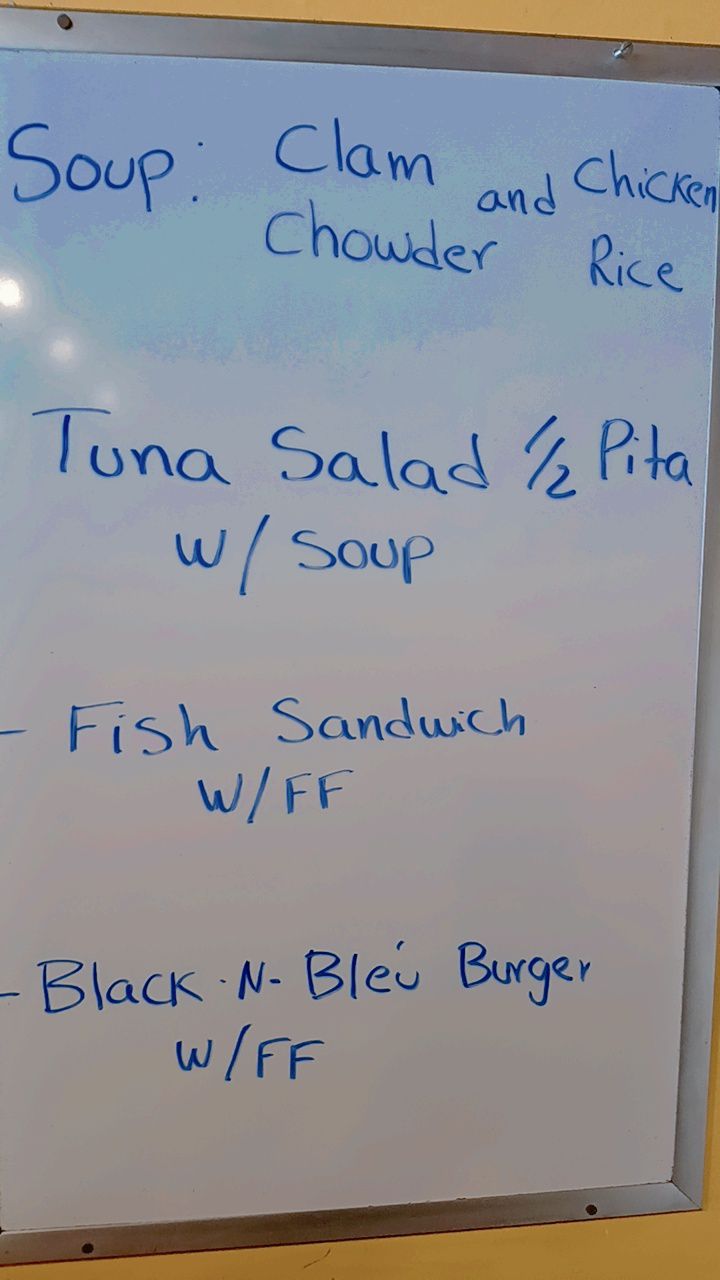 Soup: Clam and Chicken
Chowder Rice
Tuna Salad 1/2 Pita
W/ Soup
- Fish Sandwich
W/FF
- Black-N-Bleú Burger
W/FF